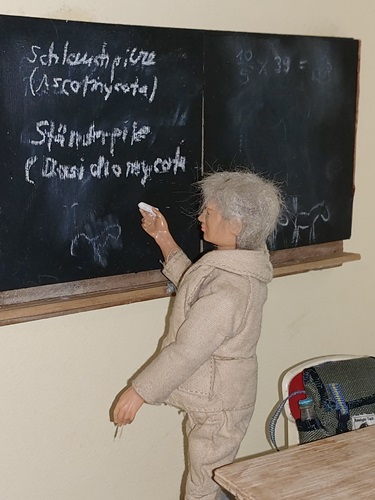 Schlauchpilze
(Ascotmycota)
Ständerpile
(Dasidiomycota
x 39 =